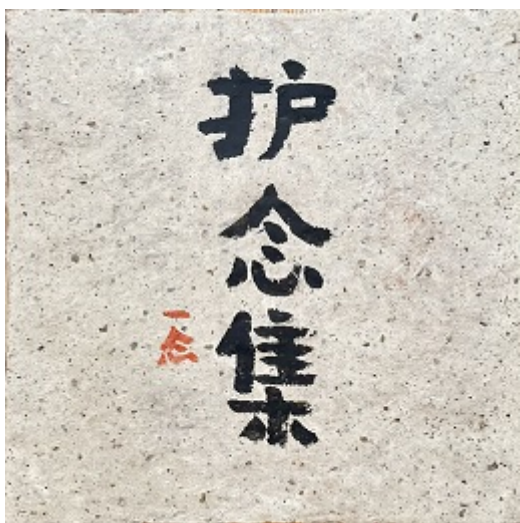 护念集
一念